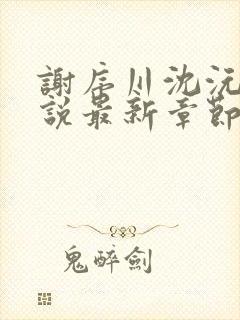 謝辰川沈沅
說最新章節
鬼醉劍